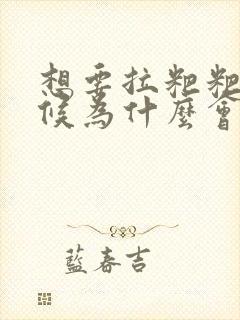 想要拉粑粑
候為什麼會
藍春吉